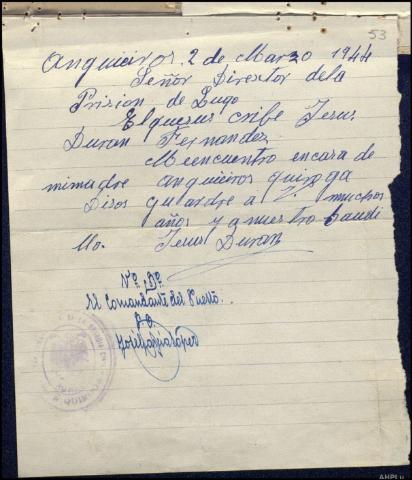 53
Anguieiros 2 de Marzo 1944
Señor Director dela
Prision de Lugo
Elquesus cribe Jesus
Duran Fernandez
Meencuentro encasa de
mimadre anguieiros quiroga
Dios guardre a V. muchos
años y anuestro Caudi
llo. Jesus Duran
Vº. Bº.
El Comandante del Puesto.
AHPLu